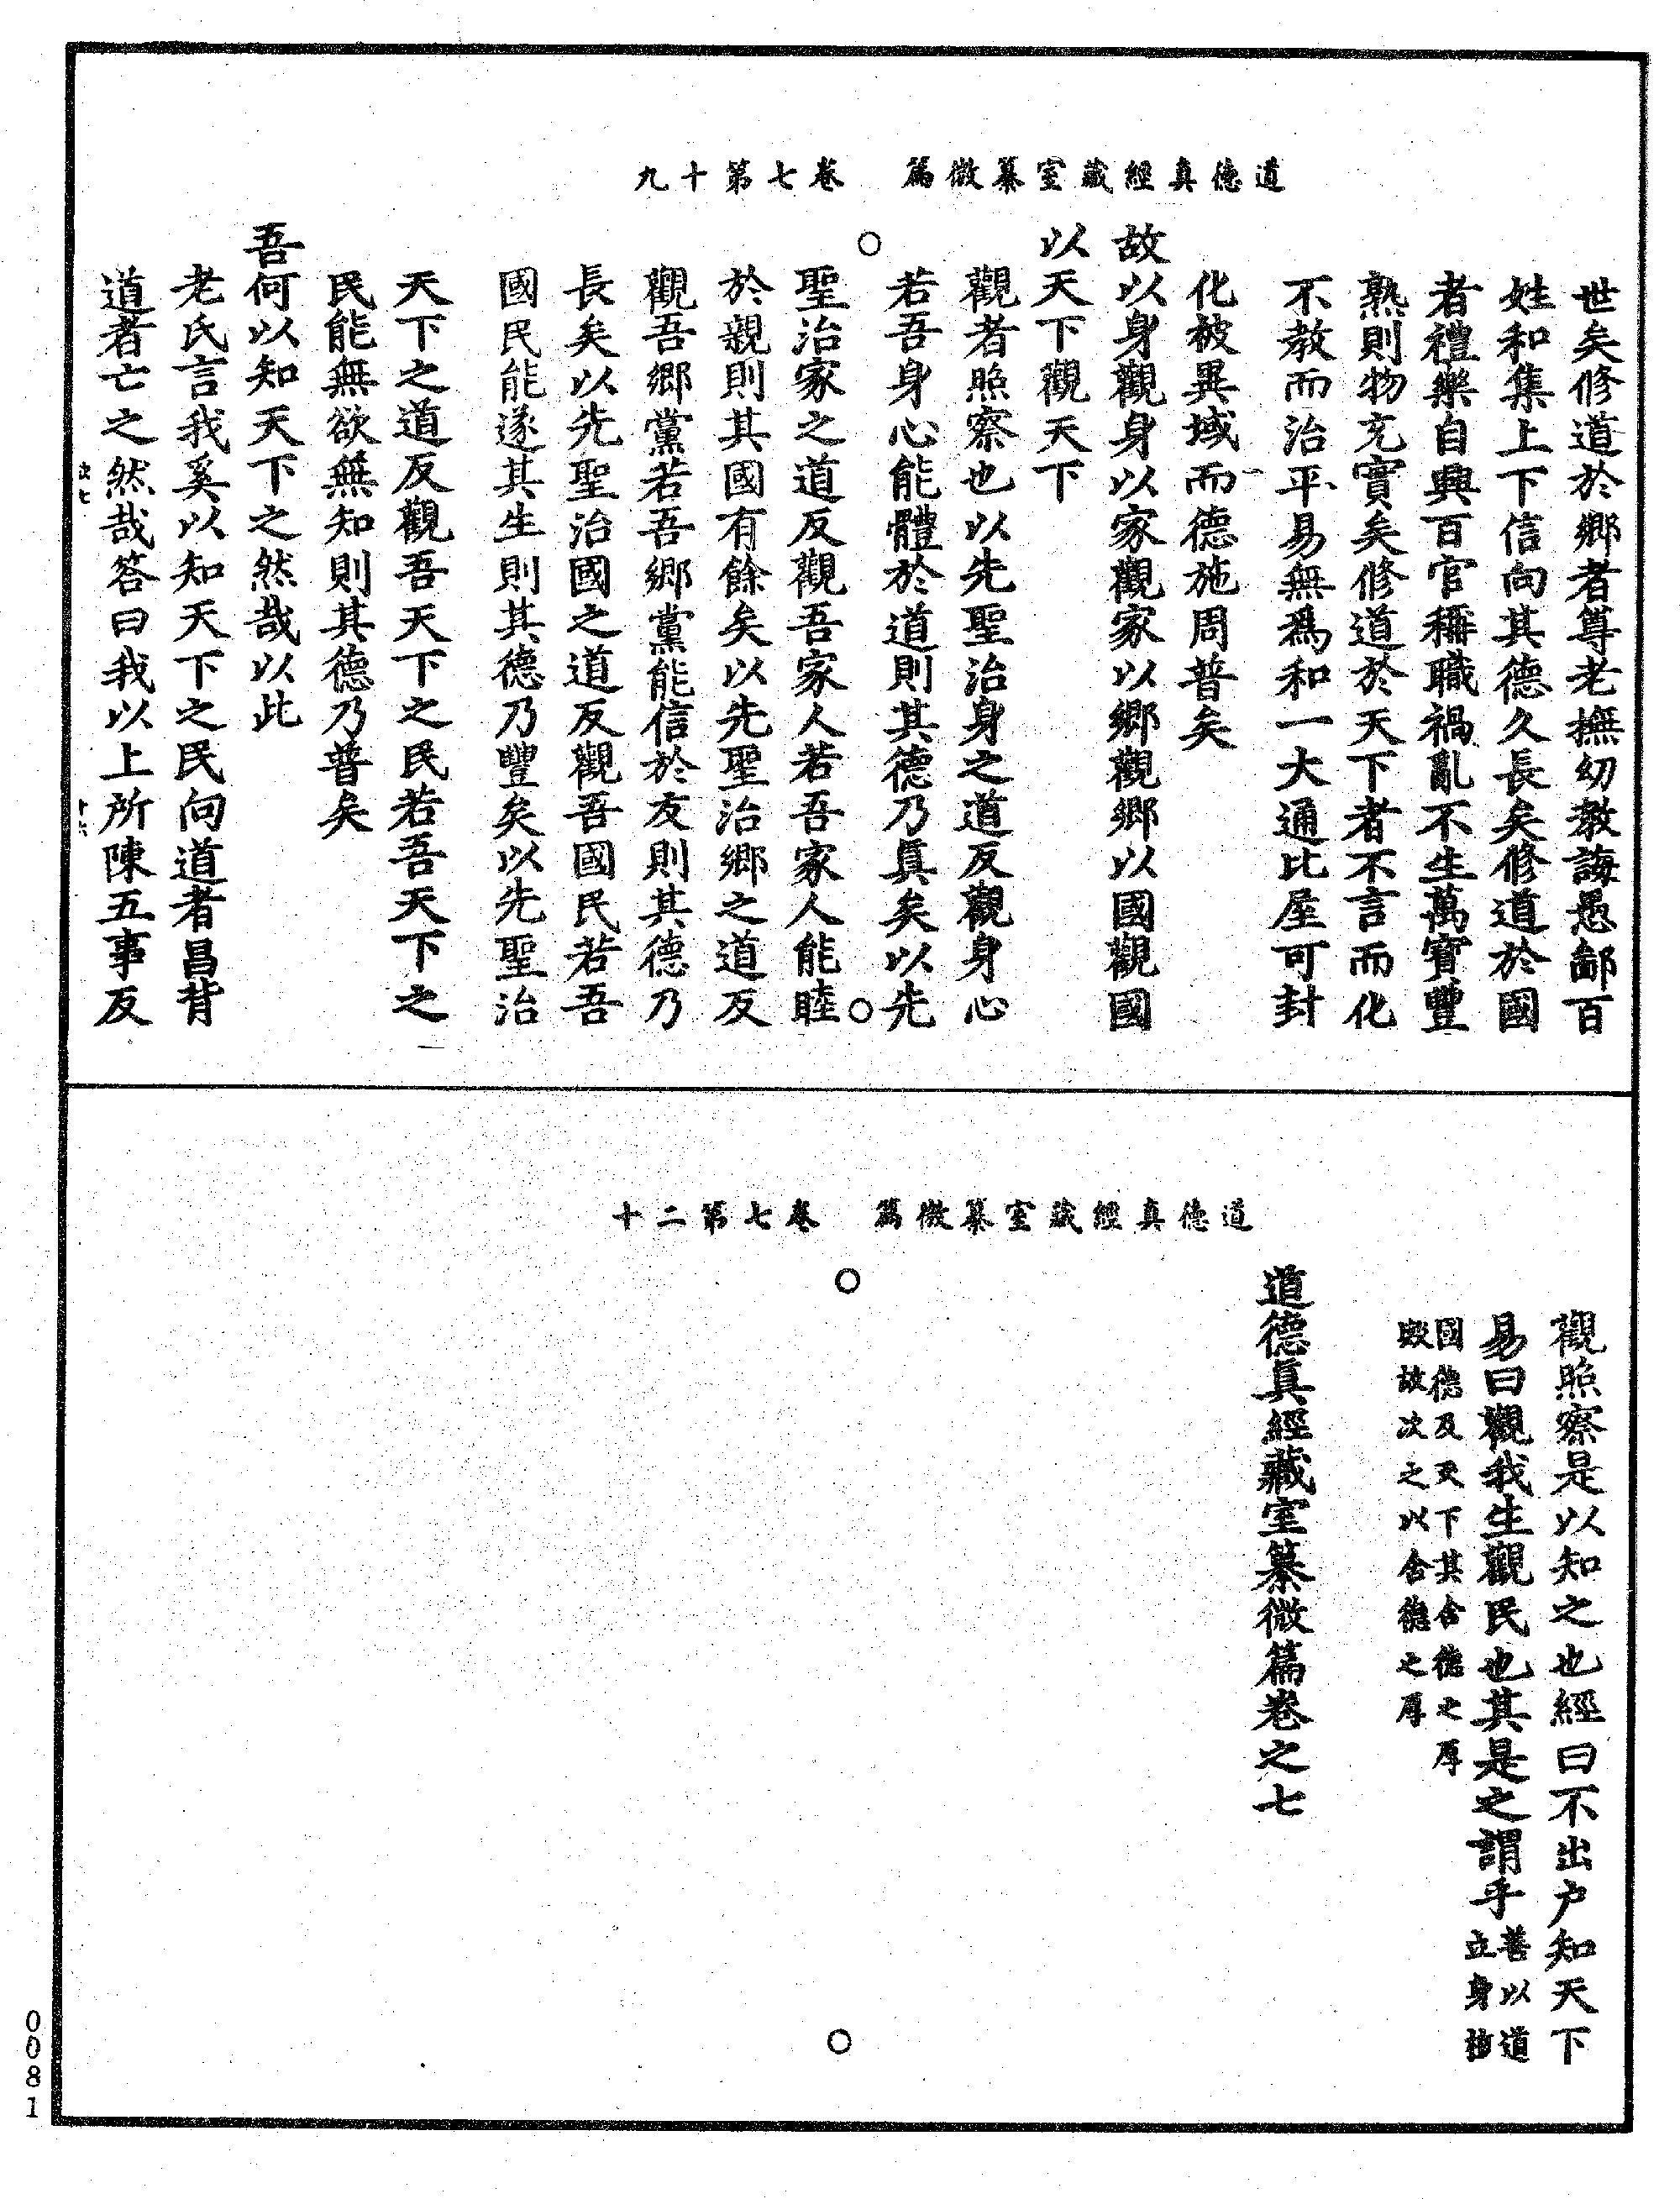 道德真經藏室纂微篇　卷七第十九
世矣修道於鄉者尊老撫幼教誨愚鄙百
姓和集上下信向其德久長矣修道於國
者禮樂自興百官稱職禍亂不生萬寶豐
熟則物充實矣修道於天下者不言而化
不教而治平易無爲和一大通比屋可封
化被異域而德施周普矣
故以身觀身以家觀家以鄉觀鄉以國觀國
以天下觀天下
觀者照察也以先聖治身之道反觀身心
若吾身心能體於道則其德乃眞矣以先
聖治家之道反觀吾家人若吾家人能睦
於親則其國有餘矣以先聖治鄉之道反
觀吾鄉黨若吾鄉黨能信於友則其德乃
長矣以先聖治國之道反觀吾國民若吾
國民能遂其生則其德乃豐矣以先聖治
天下之道反觀吾天下之民若吾天下之
民能無欲無知則其德乃普矣
吾何以知天下之然哉以此
老氏言我奚以知天下之民向道者昌背
道者亡之然哉答曰我以上所陳五事反
道德真經藏室纂微篇　卷七第二十
觀照察是以知之也經曰不出户知天下
易曰觀我生觀民也其是之謂乎善以道立身
國德及天下其含德之厚
故次之以含德之厚
道德眞經藏室纂微篇卷之七
0081